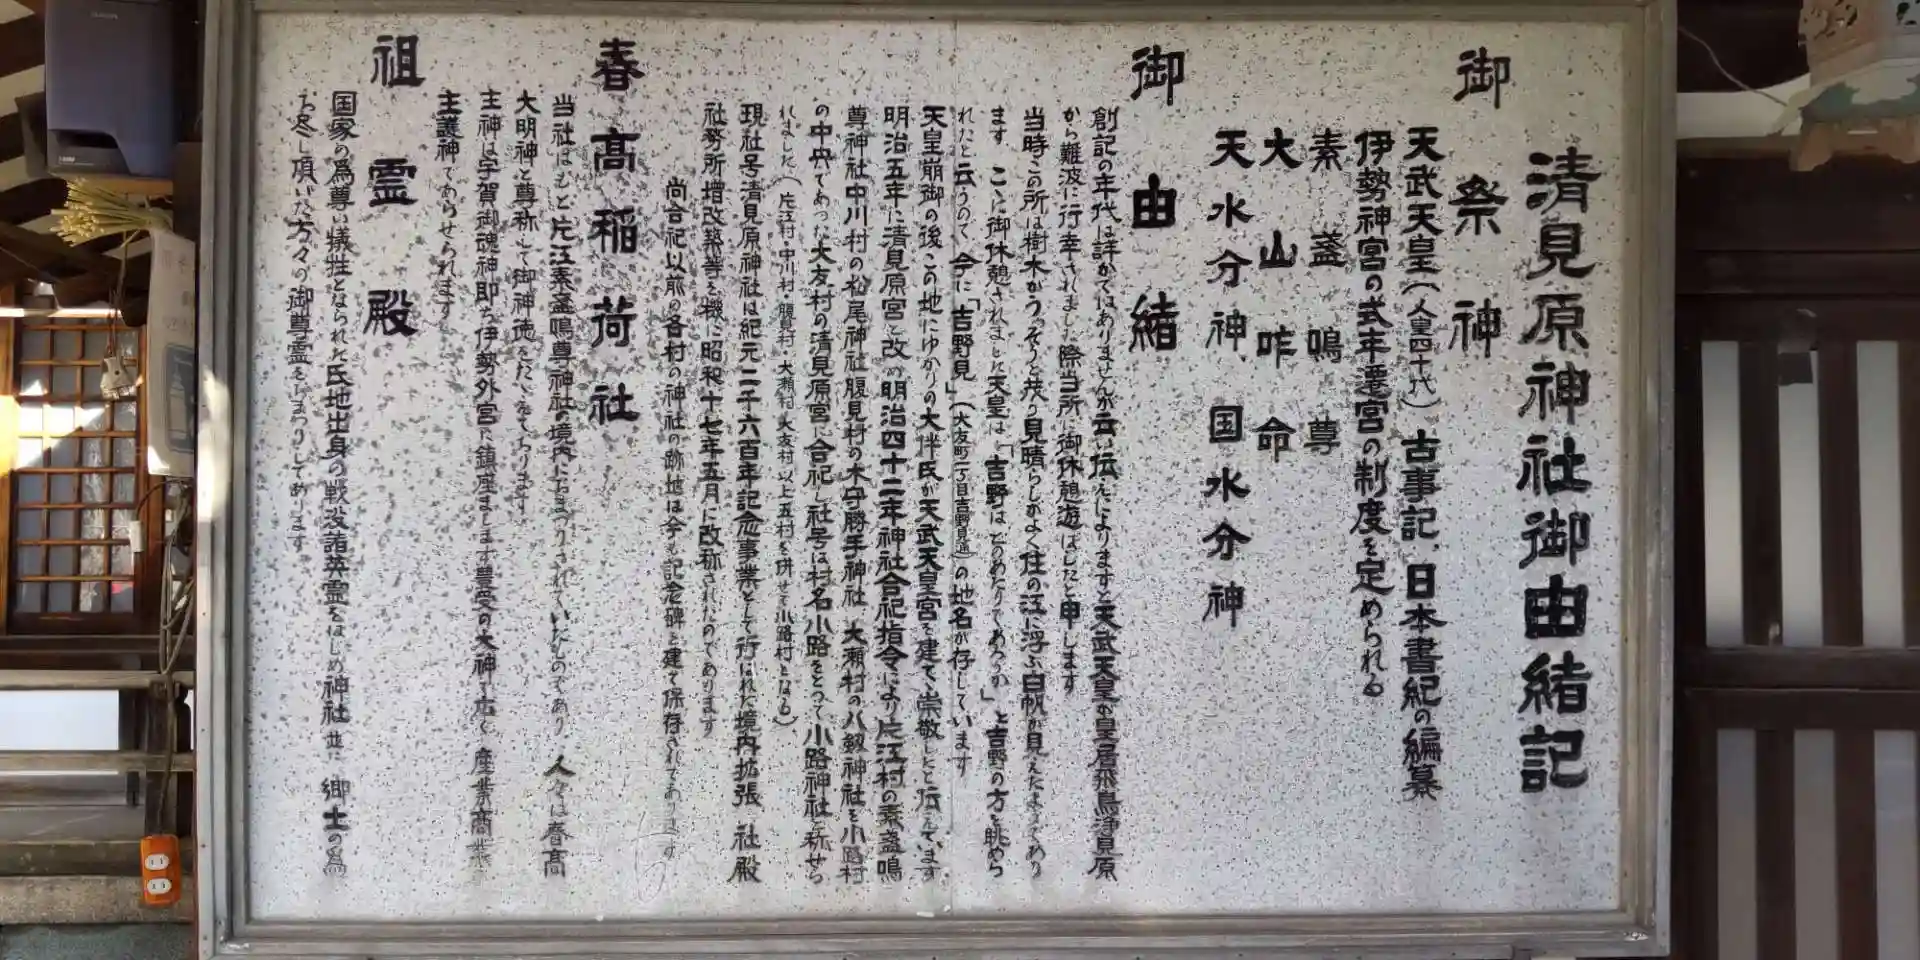 清見原神社御由緒記
御祭神
天武天皇(人皇四十代)古事記、日本書紀の編纂
伊勢神宮の式年遷宮の制度を定められる
素盞鳴尊
大山咋命
天水分神 国水分神
御由緒
創記の年代は詳かではありませんが云い伝えによりますと天武天皇が皇居飛鳥浄見原
から難波に行幸されました際当所に御休憩遊ばしたと申します
当時この所は樹木がうっそうと茂り見晴らしがよく住の江に浮ぶ白帆が見えたようであり
ます こゝに御休憩されました天皇は「吉野はどのあたりであろうか」と吉野の方を眺めら
れたと云うので、今に「吉野見」(大友町一丁目吉野見通)の地名が存しています
天皇崩御の後この地にゆかりの大伴氏が天武天皇宮を建て、崇敬したと伝えています
明治五年に清見原宮と改め明治四十二年神社合祀指令により片江村の素盞鳴
尊神社中川村の松尾神社腹見村の木守勝手神社 大瀬村の八劔神社を小路村
の中央であった大友村の清見原宮に合祀し社号は村名小路をとって小路神社と称せら
れました(片江村・中川村・腹見村・大瀬村・大友村 以上五村を併せて小路村となる)
現社号清見原神社は紀元二千六百年記念事業として行はれた境内拡張 社殿
社務所増改築等を機に昭和十七年五月に改称されたのであります
尚合祀以前の各村の神社の跡地は今も記念碑を建て保存されてあります
春高稲荷社
当社はもと片江素盞鳴尊神社の境内におまつりされていたものであり 人々は春高
大明神と尊称して御神徳をたゝえております
主神は宇賀御魂神即ち伊勢外宮に鎮座まします豊受の大神で広く 産業商業
主護神であらせられます
祖霊殿
国家の為尊い犠牲となられた氏地出身の戦没諸英霊をはじめ神社 並に 郷土の為
尽し頂いた方々の御尊霊をおまつりしてあります